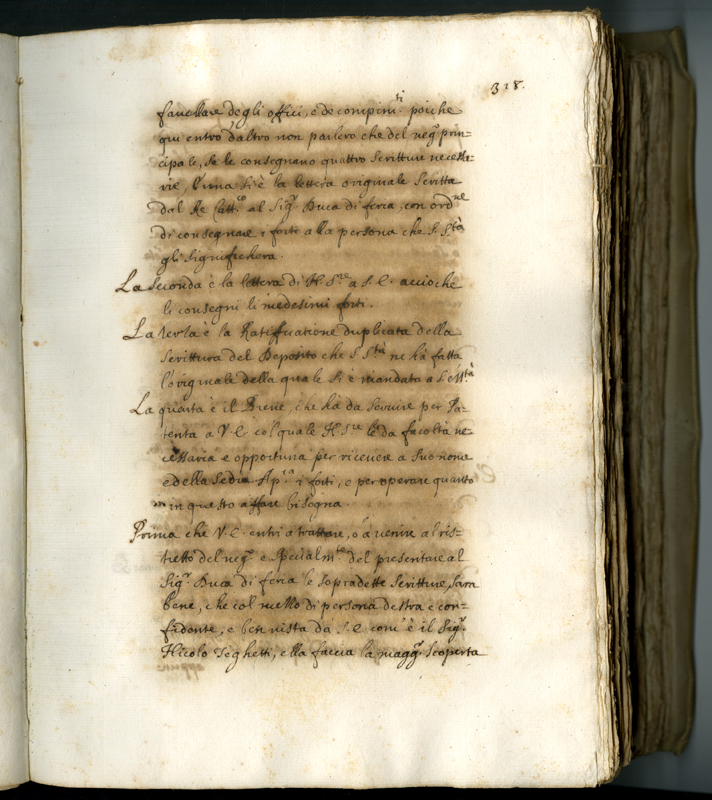 318.
favellare degli offici, e de compim.ti poiche
qui entro d'altro non parlero che del neg.o prin=
cipale, se le consegnano quattro scritture necessa=
rie, l'una si è la lettera originale scritta
dal Re Catt.co al Sig.r Duca di feria, con ord.ne
di consegnare i forti alla persona che S. S.tà
gli significhera.
La seconda è la lettera di N. S.re a S. E. accioche
li consegni li medesimi forti.
La terza è la Ratificatione duplicata della
scrittura del Deposito che S. S.tà ne hà fatta
l'originale della quale si è mandata a S. M.tà
La quarta è il Breve, che hà da servire per Pa=
tente a V. E. col quale N. S.re le dà facoltà ne=
cessaria e opportuna per ricevere a suo nome
e della Sedia Ap.ca i forti, e per operare quanto
in questo affare bisogna.
Prima che V. E. entri a trattare, ò à venire al ris=
tretto del neg.o e specialm.te del presentare al
Sig.r Duca di feria le sopradette scritture, sara
bene, che col mezzo di persona destra e con=
fidente, e ben vista da S. E. com' è il Sig.r
Nicolo Seghetti, ella faccia la magg.r scoperta